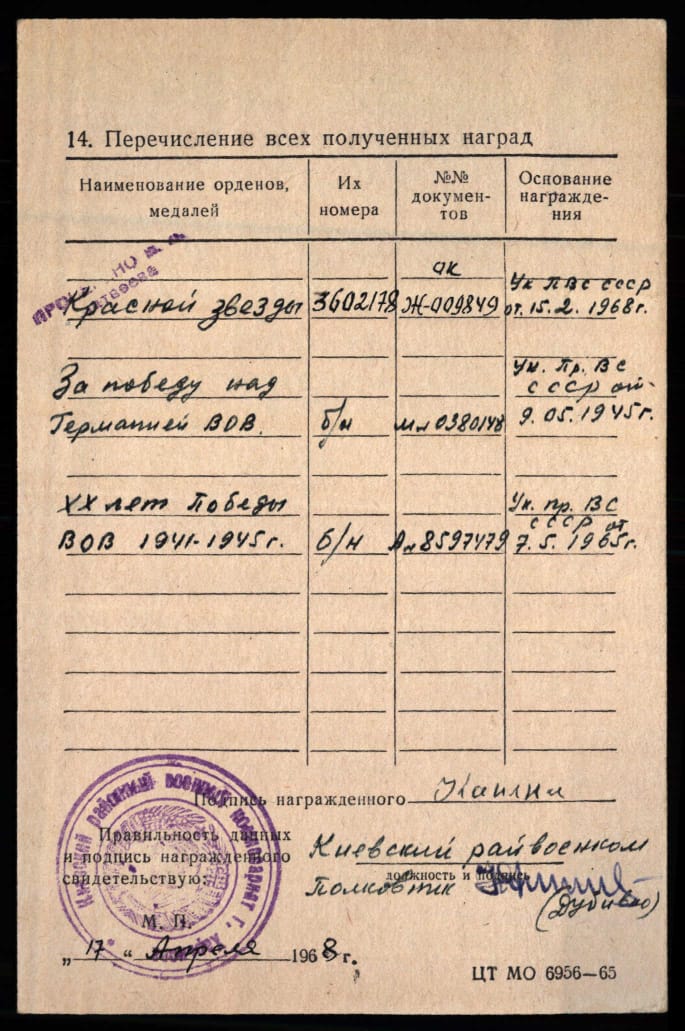 14. Перечисление всех полученных наград
Наименование орденов, медалей
Их номера
№№ документов
Основание награждения
Красной звезды
3602178
ак
Ж-009849
Ук ПВС СССР
от 15.2. 1968г.
За победу над
Германией ВОВ.
б/н
0380148
Ук. Пр. ВС
СССР от
9.05.1945г.
XX лет Победы
ВОВ 1941-1945г.
б/н
8597479
Ук. пр. ВС
СССР от
7.5. 1965г.
Подпись награжденного
Правильность данных
и подпись награжденного
свидетельствую:
Киевский райвоенком
должность и подпись
Полковник
М. П.
„ 17 “ Апреля 1968 г.
ЦТ МО 6956—65